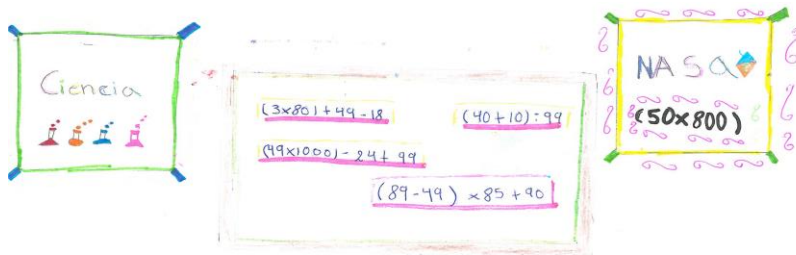 Ciencia
(3x80)+49-18
(40+10):99
(49x1000)-24+99
(89-49) x85+90
NASA
(50x800)